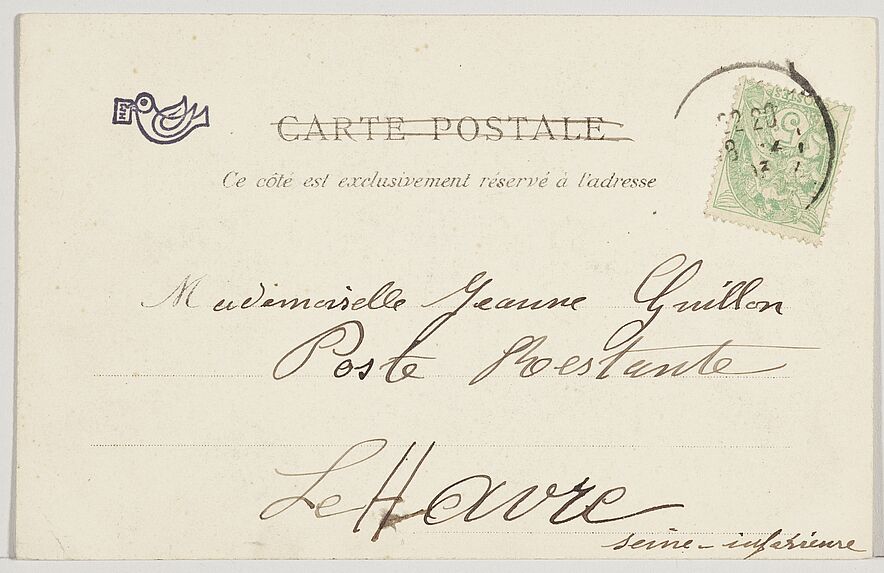 CARTE POSTALE
Ce côté est exclusivement réservé à l'adresse
Mademoiselle Jeanne Guillon
Poste Restante
Le Havre
Seine-inférieure
5